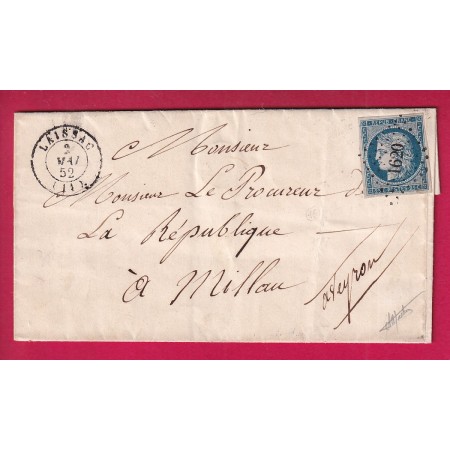 LAISSAC
2
MAI
52
(11)
REPUB. FRANC.
1620
Monsieur
Monsieur Le Procureur de
La République
à Millau
aveyron